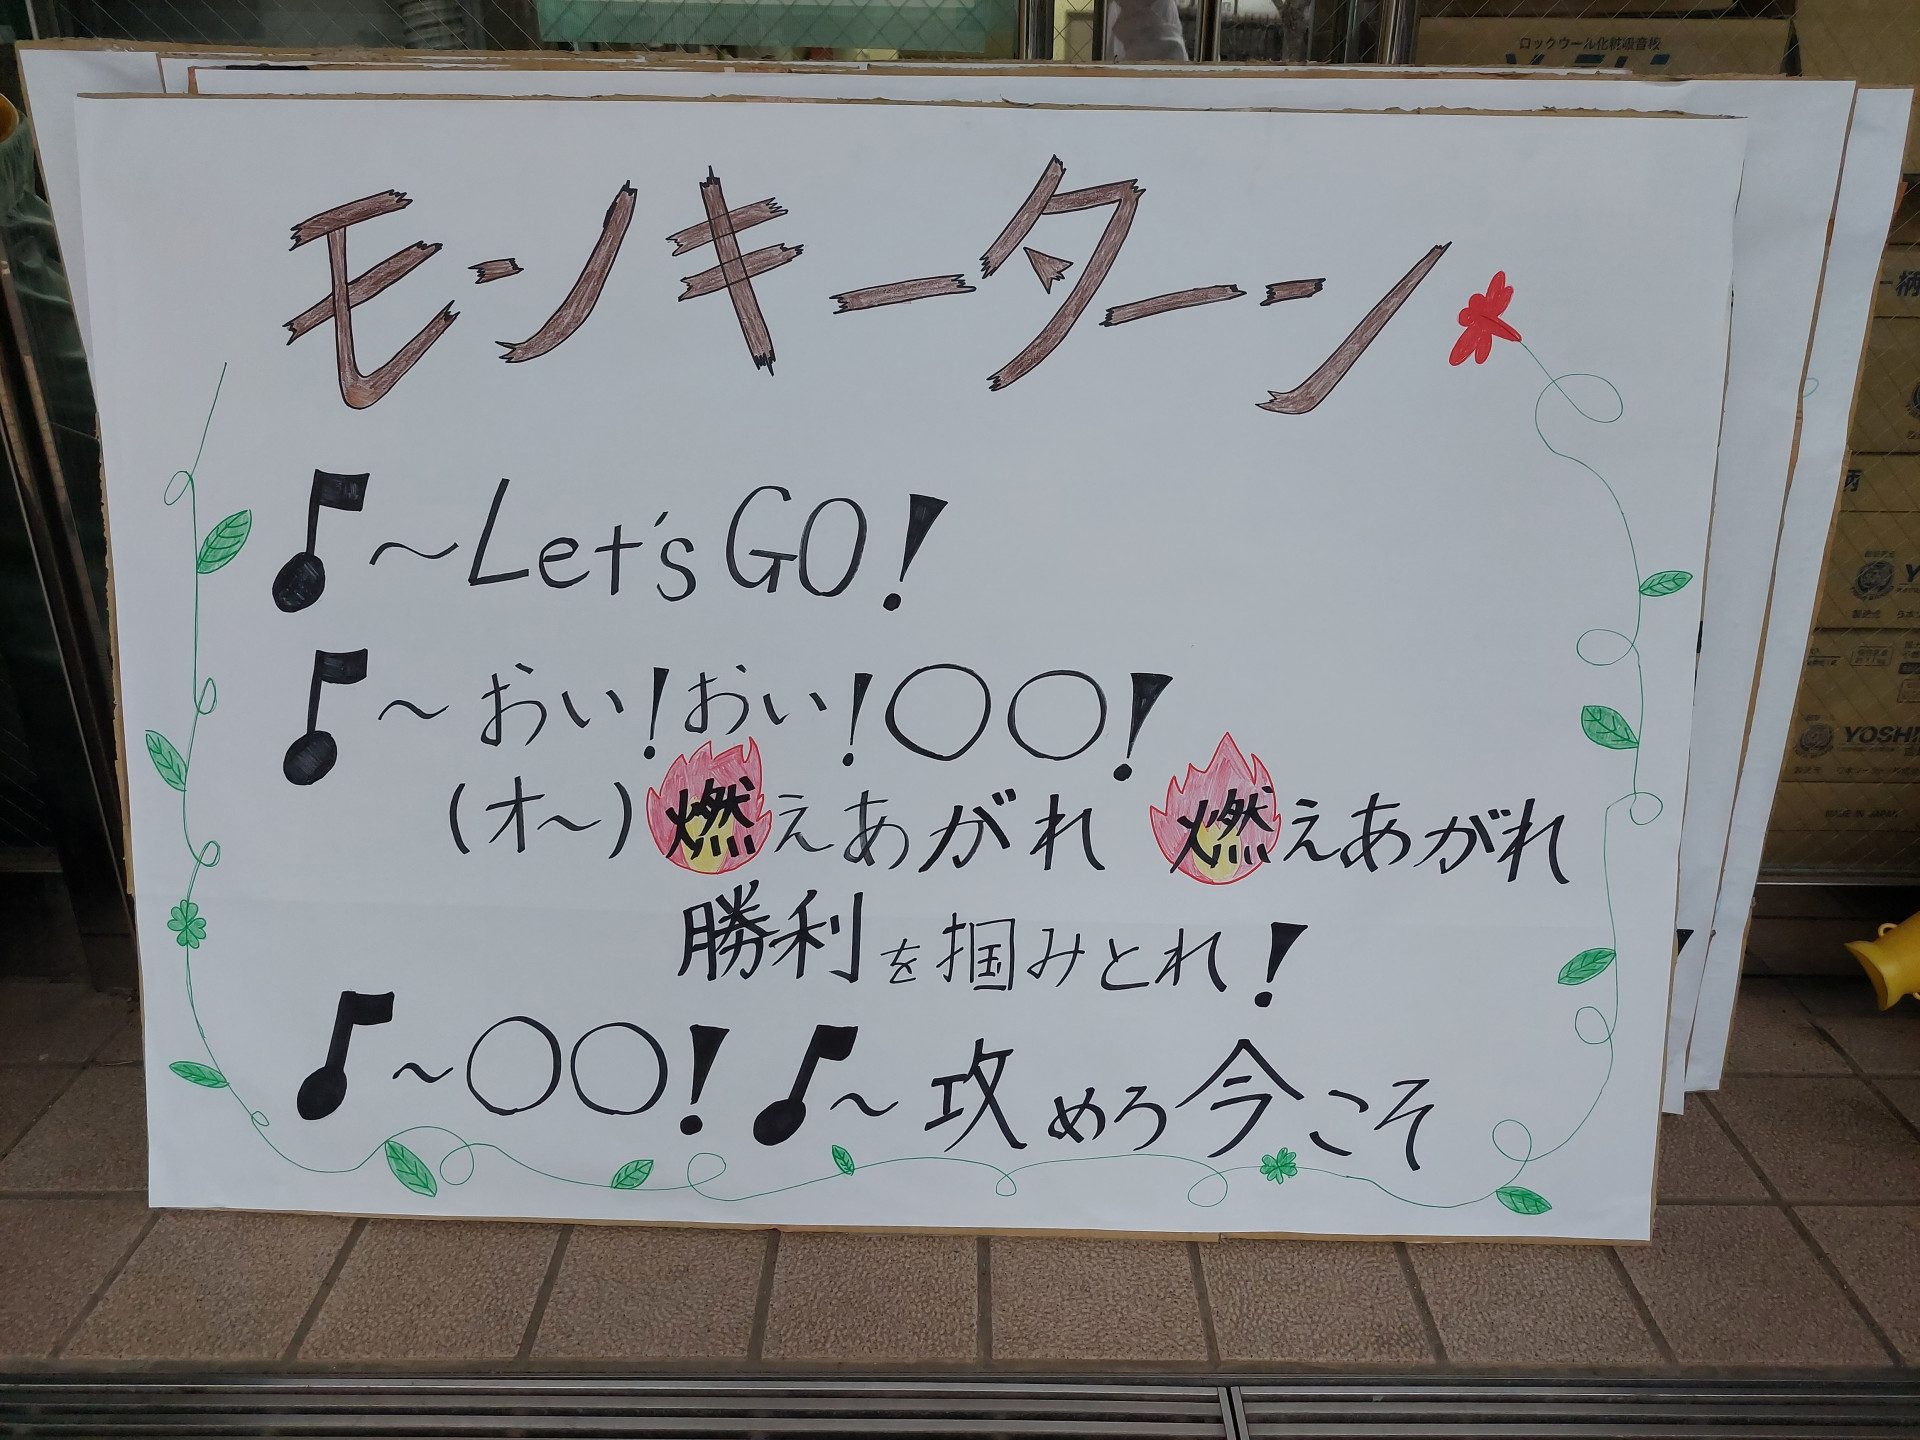 ロックウール化粧吸音板
モンキーターン
♪〜Let's GO!
♪〜おい!おい!〇〇!
(オ〜)燃えあがれ 燃えあがれ
勝利を掴みとれ!
♪〜〇〇!♪〜攻めろ今こそ
柄
YOSHI
MADE IN JAPAN